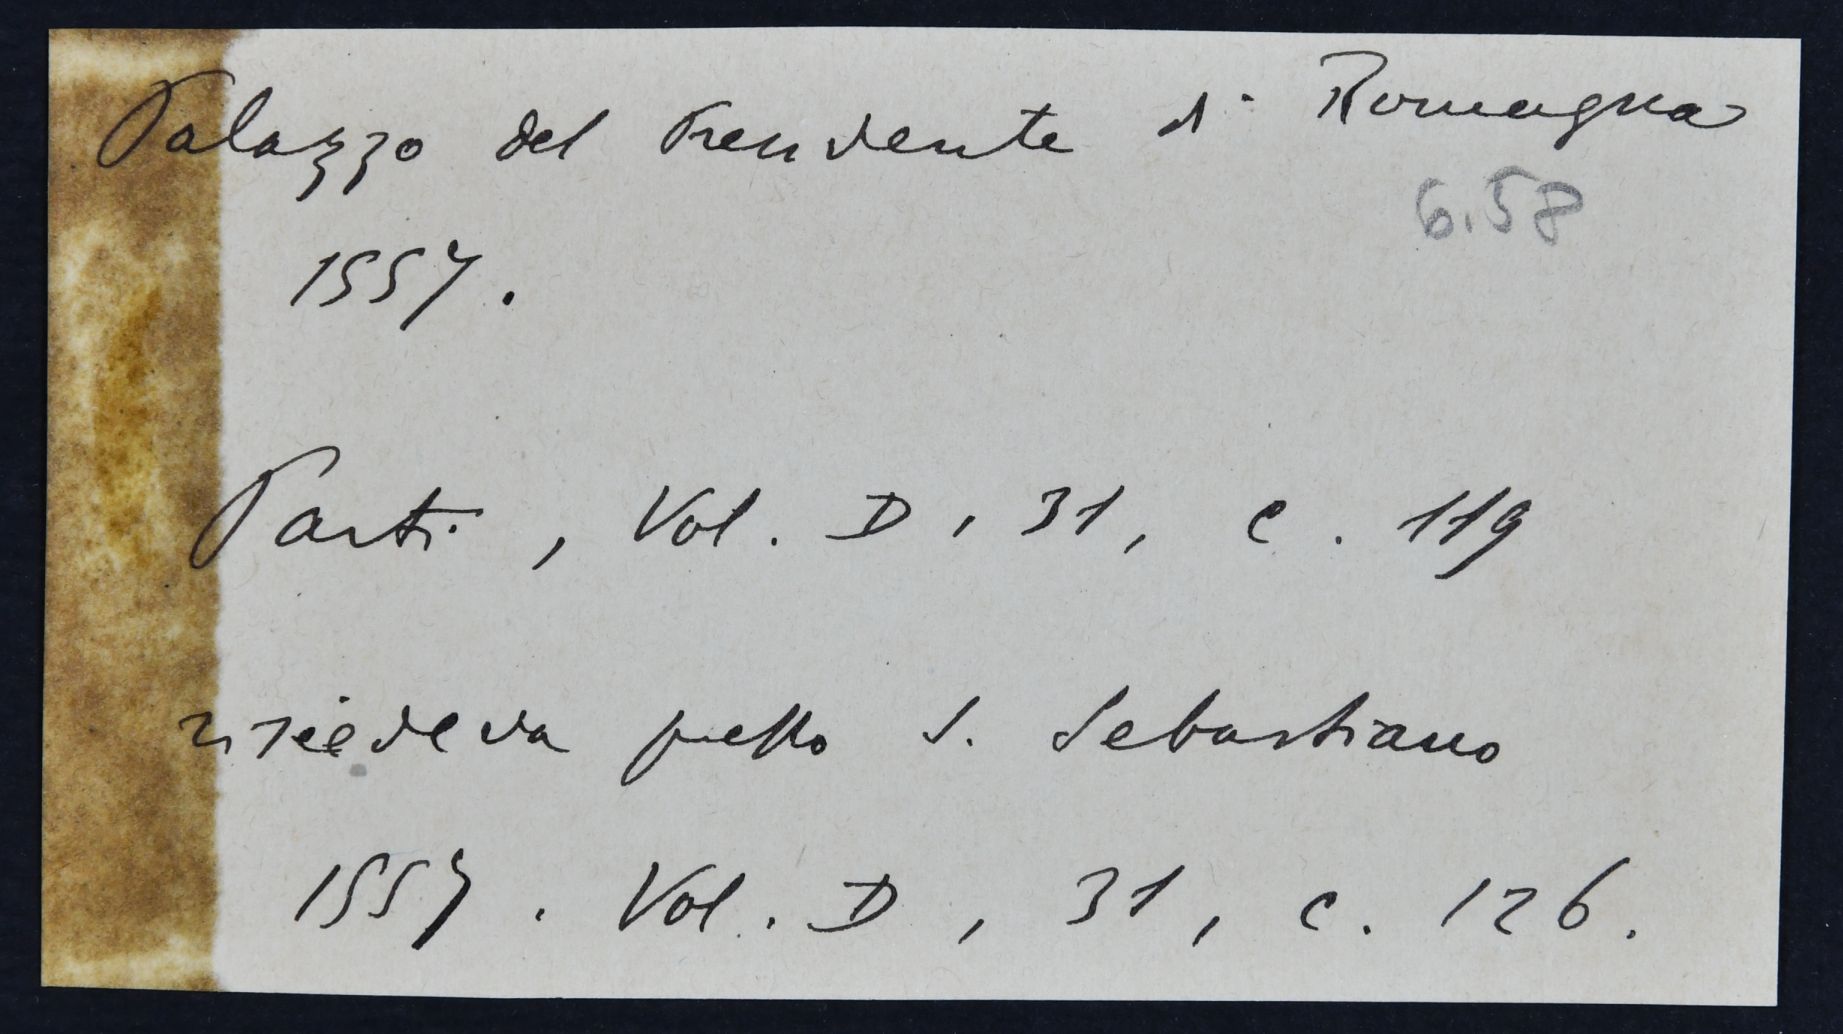 Palazzo del Presidente di Romagna
6.58
1557.
Parti, Vol. D, 31, c. 119
risiedeva presso S. Sebastiano
1557. Vol. D, 31, c. 126.